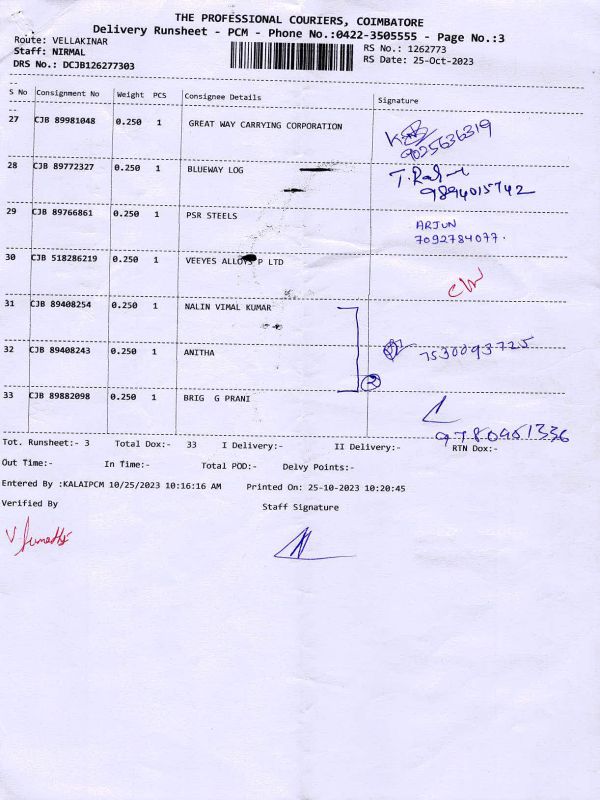 THE PROFESSIONAL COURIERS, COIMBATORE
Delivery Runsheet - PCM - Phone No.:0422-3505555 - Page No.:3
Route: VELLAKINAR
RS No.: 1262773
Staff: NIRMAL
RS Date: 25-Oct-2023
DRS No.: DCJB126277303
S No Consignment No Weight PCS Consignee Details Signature
27 CJB 89981048 0.250 1 GREAT WAY CARRYING CORPORATION
9025636319
28 CJB 89772327 0.250 1 BLUEWAY LOG
9894015742
29 CJB 89766861 0.250 1 PSR STEELS ARJUN
7092784077.
30 CJB 518286219 0.250 1 VEEYES ALLOYS P LTD
31 CJB 89408254 0.250 1 NALIN VIMAL KUMAR
32 CJB 89408243 0.250 1 ANITHA 7530093725
2
33 CJB 89882098 0.250 1 BRIG G PRANI
9780951336
Tot. Runsheet:- 3 Total Dox:- 33 I Delivery:- II Delivery:- RTN Dox:-
Out Time:- In Time:- Total POD:- Delvy Points:-
Entered By :KALAIPCM 10/25/2023 10:16:16 AM Printed On: 25-10-2023 10:20:45
Verified By Staff Signature